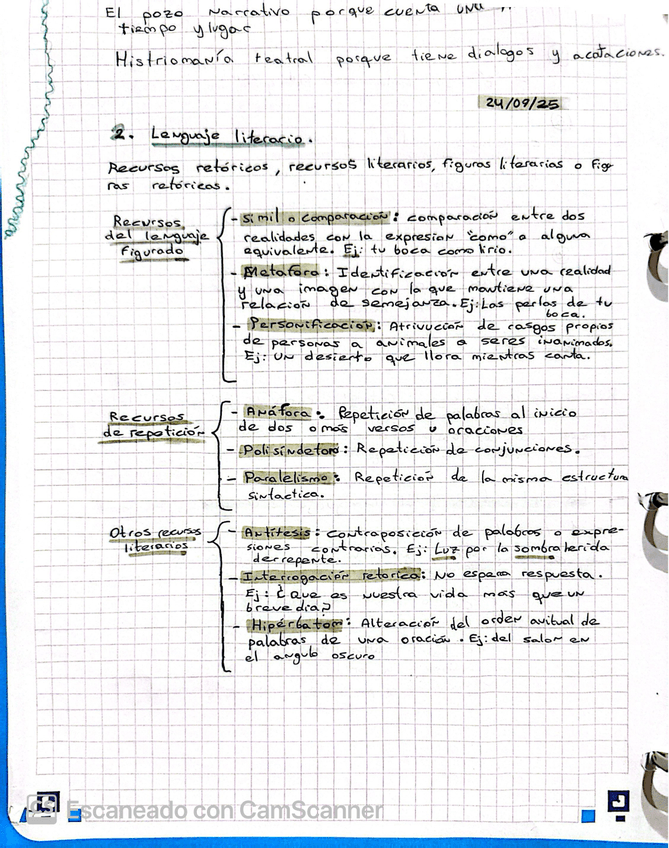 El pozo narrativo porque cuenta una
tiempo y lugar
Histriomanía teatral porque tiene dialogos y acotaciones.
24/09/25
2. Lenguaje literario.
Recursos retóricos, recursos literarios, figuras literarias o figu
ras retóricas.
Recursos
del lenguaje
figurado
- Simil o comparación: comparación entre dos
realidades con la expresion "como" o alguna
equivalente. Ej: tu boca como lirio.
- Metafora: Identificación entre una realidad
y una imagen con la que mantiene una
relación de semejanza. Ej: Las perlas de tu
boca.
- Personificación: Atrivución de rasgos propios
de personas a animales o seres inanimados.
Ej: Un desierto que llora mientras canta.
Recursos
de repetición
- Anáfora: Repetición de palabras al inicio
de dos o más versos u oraciones
- Polisíndeton: Repetición de conjunciones.
- Paralelismo: Repetición de la misma estructura
sintactica.
Otros recursos
literarios
- Antítesis: Contraposición de palabras o expre-
siones contrarias. Ej: Luz por la sombra herida
derrepente.
- Interrogación retorica: No espera respuesta.
Ej: ¿Que es nuestra vida mas que un
breve dia?
- Hipérbaton: Alteración del orden avitual de
palabras de una oración. Ej: del salon en
el angulo oscuro
CS Escaneado con CamScanner